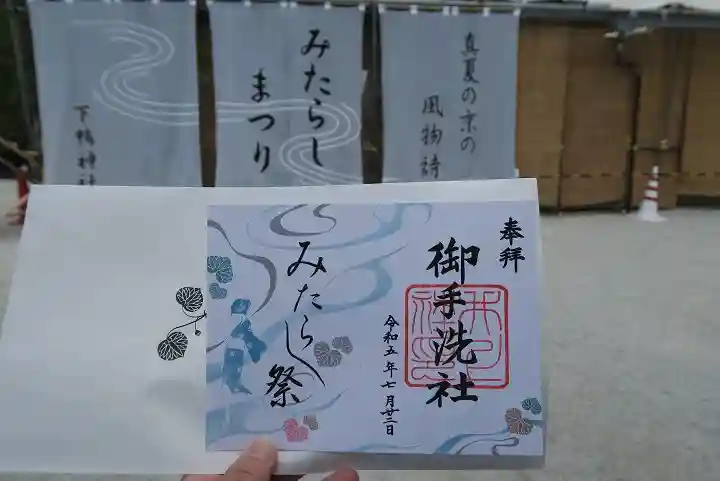 真夏の京の
風物詩
みたらし
まつり
下鴨神社
奉拝
御手洗社
令和五年七月廿二日
みたらし祭